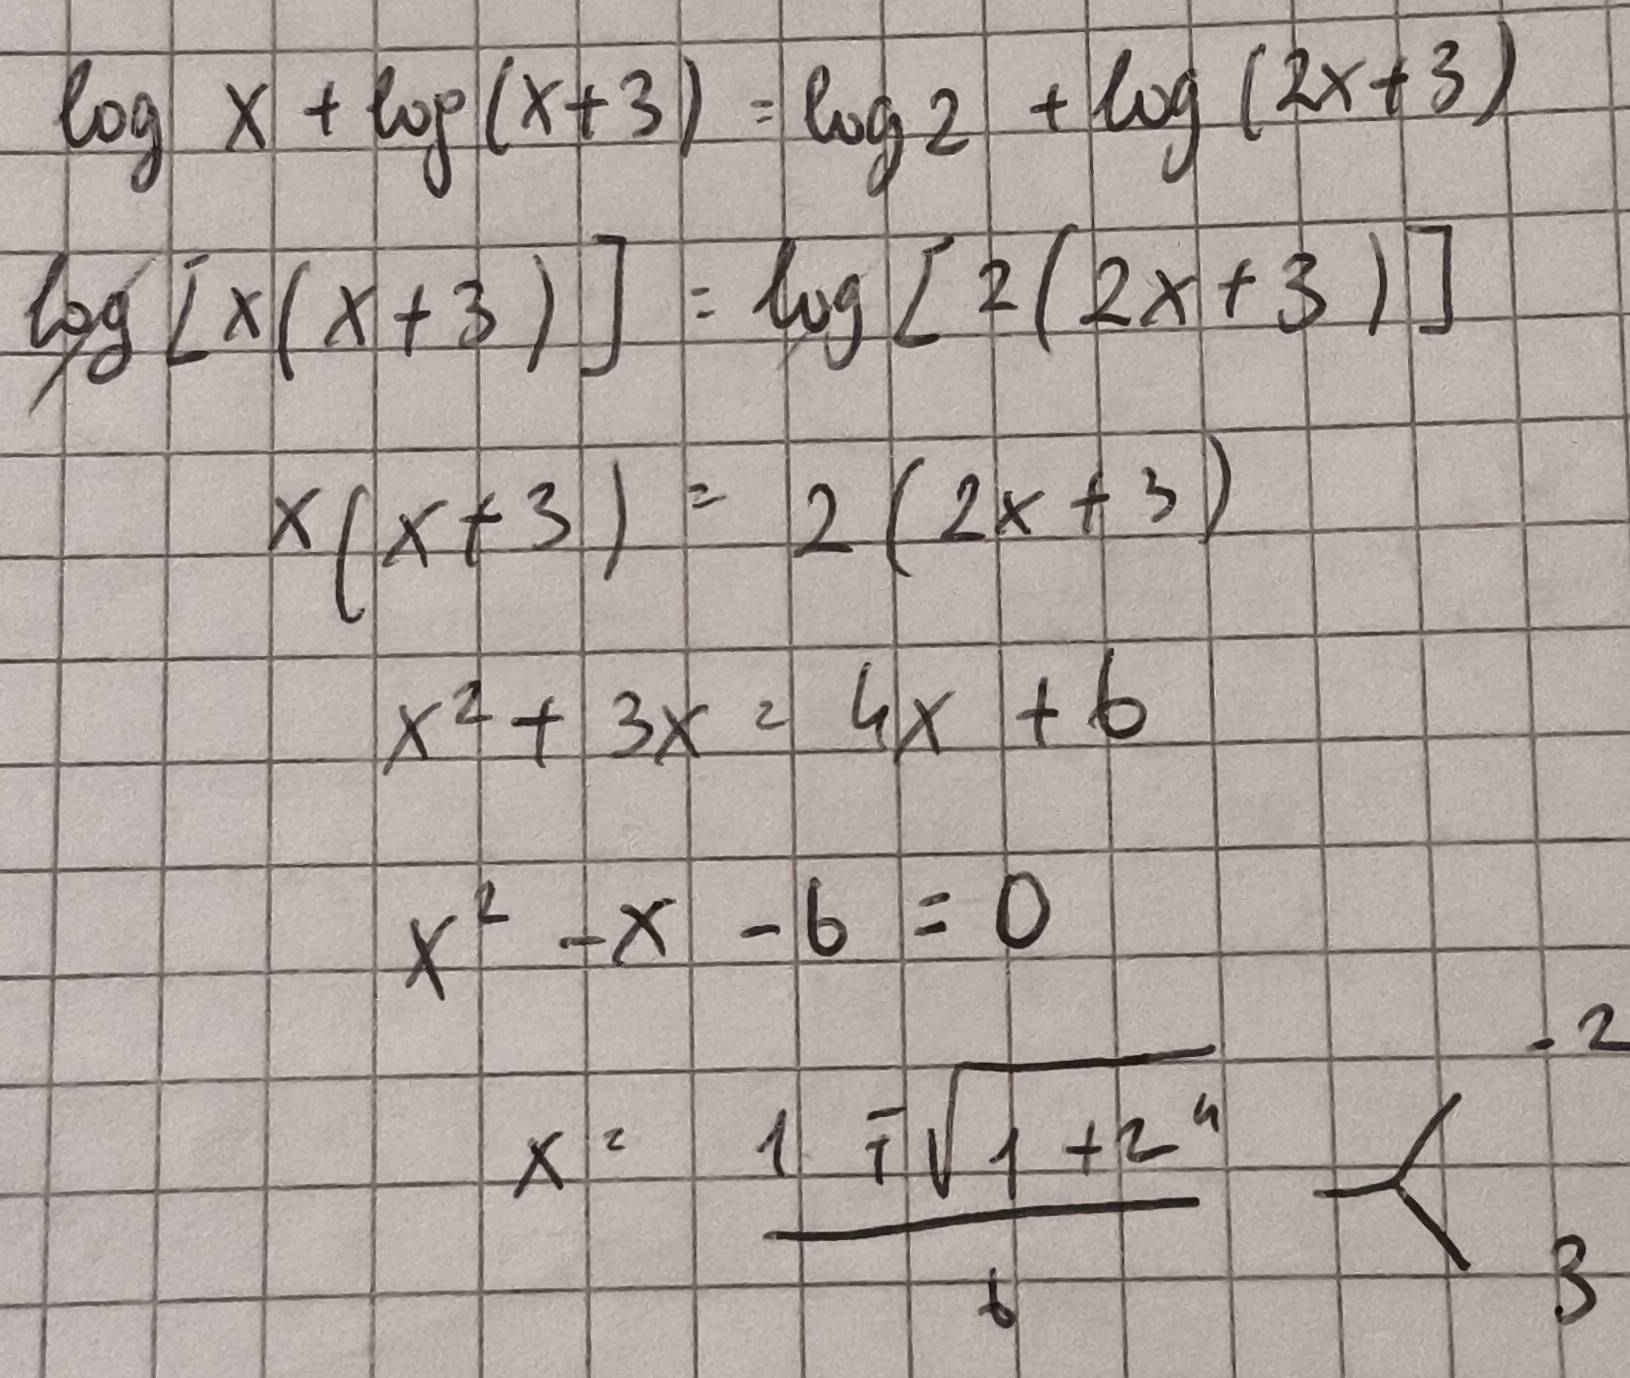 log x + log (x+3) = log 2 + log (2x+3)
log [x(x+3)] = log [2(2x+3)]
x(x+3) = 2(2x+3)
x² + 3x = 4x + 6
x² - x - 6 = 0
x = (1 ∓ √(1+24))/6 -2 3